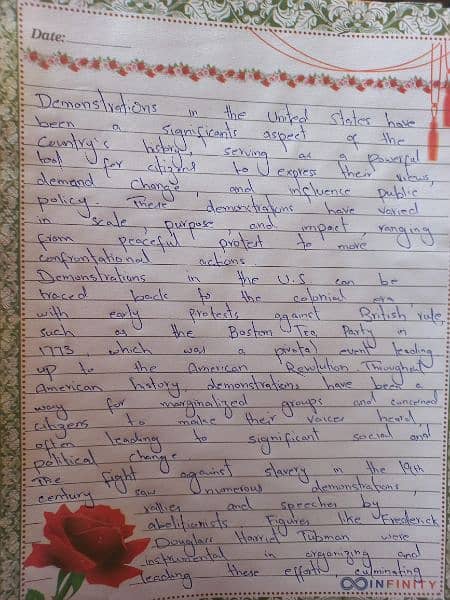 Date:
Demonstrations in the United States have
been a significants aspect of the
Country's history, serving as a powerful
tool for citizens to express their views,
demand change, and influence public
policy. These demonstrations have varied
in scale, purpose, and impact, ranging
from peaceful protest to more
confrontational actions.
Demonstrations in the U.S can be
traced back to the colonial era
with early protects against British rule,
such as the Boston Tea Party in
1773, which was a pivotal event leading
up to the American Revolution. Throughout
American history, demonstrations have been a
way for marginalized groups and concerned
citizens to make their voices heard,
often leading to significant social and
political change.
The fight against slavery in the 19th
century saw numerous demonstrations,
rallies and speeches by
abelitionists. Figures like Frederick
Douglass Harriet Tubman were
instrumental in organizing and
leading these efforts culminating
INFINITY